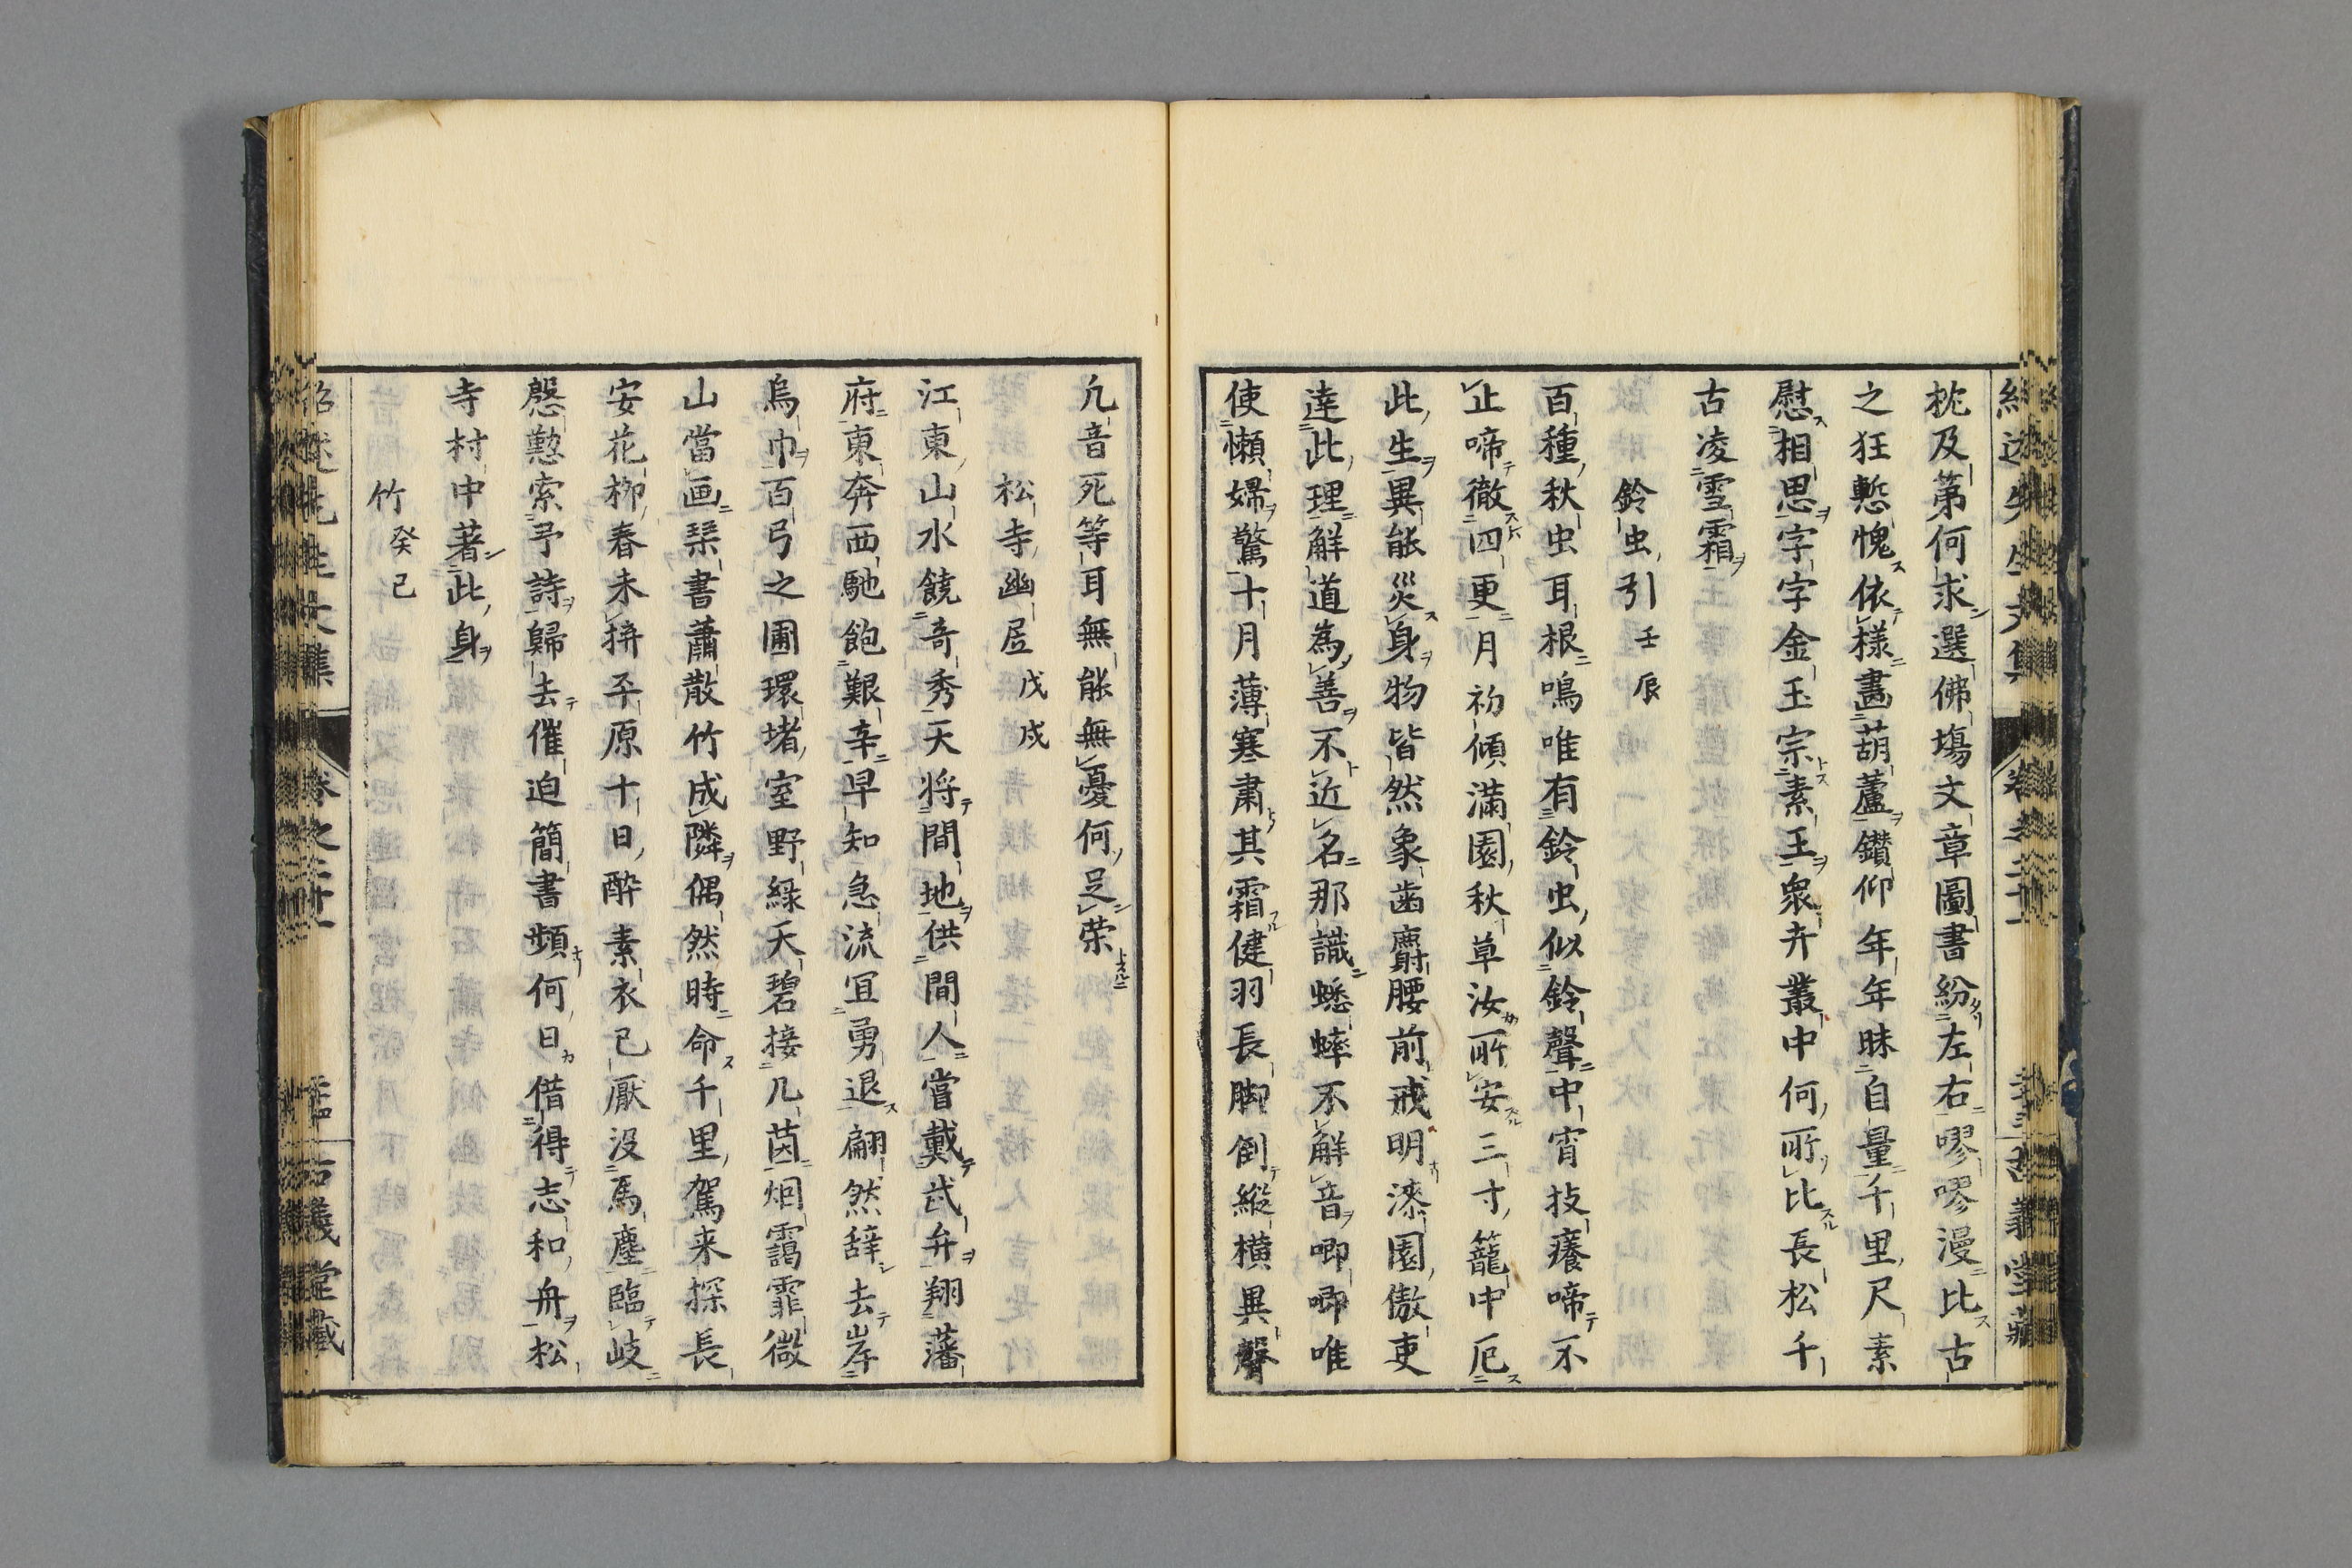 枕及第何求選佛場文章圖書紛左右嘐嘐漫比古
之狂慙愧依樣畫葫蘆鑚仰年年昧自量千里尺素
慰相思字字金玉宗素王衆卉叢中何所比長松千
古凌雪霜
鈴虫引 壬辰
百種秋虫耳根鳴唯有鈴虫似鈴聲中宵技癢啼不
止啼徹四更月初傾滿園秋草汝所安三寸籠中厄
此生異能災身物皆然象齒麝腰前戒明漆園傲吏
達此理解道為善不近名那識蟋蟀不解音唧唧唯
使懶婦驚十月薄寒肅其霜健羽長脚倒縱橫異聲
凢音死等耳無能無憂何足荣
松寺幽居 戊戍
江東山水饒奇秀天將間地供間人嘗戴武弁翔藩
府東奔西馳飽艱辛早知急流冝勇退翩然辞去岸
烏巾百弓之圃環堵室野綠天碧接几茵烟靄霏微
山當画琹書蕭散竹成隣偶然時命千里駕来探長
安花柳春未拚平原十日酔素衣已厭没馬塵臨岐
慇懃索予詩歸去催迫簡書頻何日借得志和舟松
寺村中著此身
竹 癸已